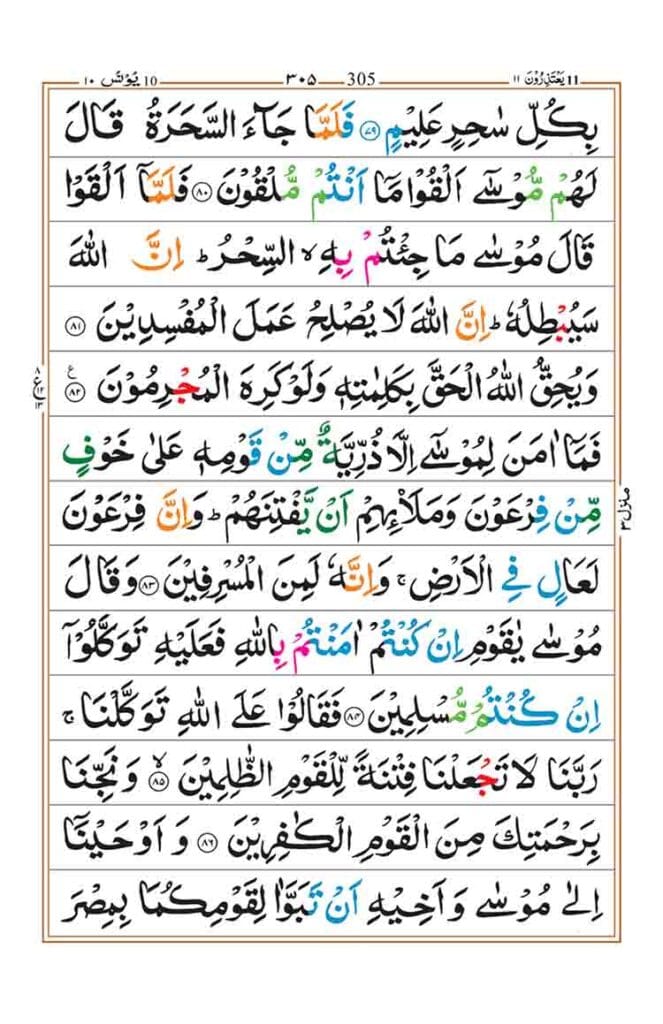 ١١ يَعْتَذِرُوْنَ 11 ٣٠٥ 305 ١٠ يُوْنُس 10
بِكُلِّ سٰحِرٍ عَلِيْمٍ ﴿٧٩﴾ فَلَمَّا جَآءَ السَّحَرَةُ قَالَ
لَهُمْ مُّوْسٰٓى اَلْقُوْا مَاۤ اَنْتُمْ مُّلْقُوْنَ ﴿٨٠﴾ فَلَمَّاۤ اَلْقَوْا
قَالَ مُوْسٰى مَا جِئْتُمْ بِهِ ۙ السِّحْرُ ؕ اِنَّ اللّٰهَ
سَيُبْطِلُهٗ ؕ اِنَّ اللّٰهَ لَا يُصْلِحُ عَمَلَ الْمُفْسِدِيْنَ ﴿٨١﴾
وَيُحِقُّ اللّٰهُ الْحَقَّ بِكَلِمٰتِهٖ وَلَوْ كَرِهَ الْمُجْرِمُوْنَ ﴿٨٢﴾ ع
فَمَاۤ اٰمَنَ لِمُوْسٰٓى اِلَّا ذُرِّيَّةٌ مِّنْ قَوْمِهٖ عَلٰى خَوْفٍ
مِّنْ فِرْعَوْنَ وَمَلَا۟ئِهِمْ اَنْ يَّفْتِنَهُمْ ؕ وَاِنَّ فِرْعَوْنَ
لَعَالٍ فِى الْاَرْضِ ۚ وَاِنَّهٗ لَمِنَ الْمُسْرِفِيْنَ ﴿٨٣﴾ وَقَالَ
مُوْسٰى يٰقَوْمِ اِنْ كُنْتُمْ اٰمَنْتُمْ بِاللّٰهِ فَعَلَيْهِ تَوَكَّلُوْۤا
اِنْ كُنْتُمْ مُّسْلِمِيْنَ ﴿٨٤﴾ فَقَالُوْا عَلَى اللّٰهِ تَوَكَّلْنَا ۚ
رَبَّنَا لَا تَجْعَلْنَا فِتْنَةً لِّلْقَوْمِ الظّٰلِمِيْنَ ۙ ﴿٨٥﴾ وَنَجِّنَا
بِرَحْمَتِكَ مِنَ الْقَوْمِ الْكٰفِرِيْنَ ﴿٨٦﴾ وَاَوْحَيْنَاۤ
اِلٰى مُوْسٰى وَاَخِيْهِ اَنْ تَبَوَّاٰ لِقَوْمِكُمَا بِمِصْرَ
منزل ٣
٨ ع ١٢ ١٣